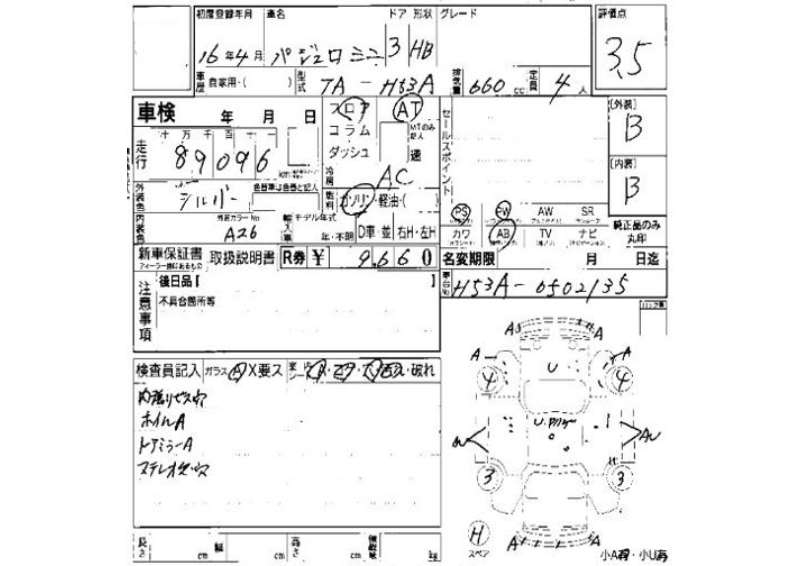 初度登録年月 車名 ドア 形状 グレード 評価点
16年4月 パジェロミニ 3 HB 3.5
車歴 自家用・( ) 型式 TA-H53A 排気量 660 cc 定員 4人
車検 年 月 日 フロア AT セールスポイント [外装]
十万千百十一 コラム MTのみ記入 B
走行 89096 ダッシュ 速
冷房 AC [内装]
外装色 シルバー 色替車は色番と記入 燃料 ガソリン・軽油・( ) B
内装色 外装カラーNo A26 輸入車 モデル年式 年・不明 D車・並 右H・左H
PS PW AW SR
カワ AB TV ナビ
純正品のみ丸印
新車保証書 取扱説明書 R券 ¥ 9660 名変期限 月 日迄
ディーラー印があるもの
注意事項 後日品 [ ] 車台No H53A-0502135
不具合箇所等
検査員記入 ガラス A X要ス 破れ
ホイルA
ドアミラーA
A A
A A
4 U 4
3 3
H
スペア A A
長さ cm 幅 cm 高さ cm 積載量 kg